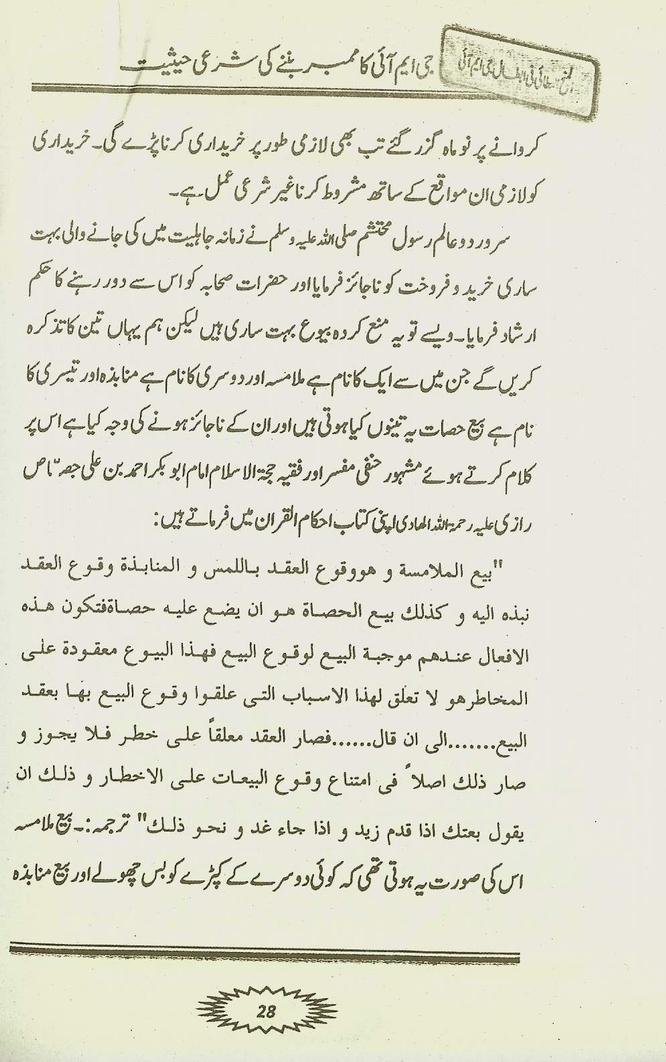 جی ایم آئی کا ممبر بننے کی شرعی حیثیت
کروانے پر نو ماہ گزر گئے تب بھی لازمی طور پر خریداری کرنا پڑے گی۔ خریداری
کو لازمی ان مواقع کے ساتھ مشروط کرنا غیر شرعی عمل ہے۔
سرور دو عالم رسول محتشم صلی اللہ علیہ وسلم نے زمانہ جاہلیت میں کی جانے والی بہت
ساری خرید و فروخت کو ناجائز فرمایا اور حضرات صحابہ کو اس سے دور رہنے کا حکم
ارشاد فرمایا۔ ویسے تو یہ منع کردہ بیوع بہت ساری ہیں لیکن ہم یہاں تین کا تذکرہ
کریں گے جن میں سے ایک کا نام ہے ملامسہ اور دوسری کا نام ہے منابذہ اور تیسری کا
نام ہے بیع حصات یہ تینوں کیا ہوتی ہیں اور ان کے ناجائز ہونے کی وجہ کیا ہے اس پر
کلام کرتے ہوئے مشہور حنفی مفسر اور فقیہ حجۃ الاسلام امام ابو بکر احمد بن علی جصّاص
رازی علیہ رحمۃ اللہ الھادی اپنی کتاب احکام القران میں فرماتے ہیں:
"بيع الملامسة و هووقوع العقد باللمس و المنابذة وقوع العقد
نبذه اليه و كذلك بيع الحصاة هو ان يضع عليه حصاةفتكون هذه
الافعال عندهم موجبة البيع لوقوع البيع فهذا البيوع معقودة على
المخاطرهو لا تعلق لهذا الاسباب التى علقوا وقوع البيع بها بعقد
البيع.......الى ان قال......فصار العقد معلقاً على خطر فلا يجوز و
صار ذلك اصلاً فى امتناع وقوع البيعات على الاخطار و ذلك ان
يقول بعتك اذا قدم زيد و اذا جاء غد و نحو ذلك" ترجمہ:۔ بیع ملامسہ
اس کی صورت یہ ہوتی تھی کہ کوئی دوسرے کے کپڑے کو بس چھولے اور بیع منابذہ
28